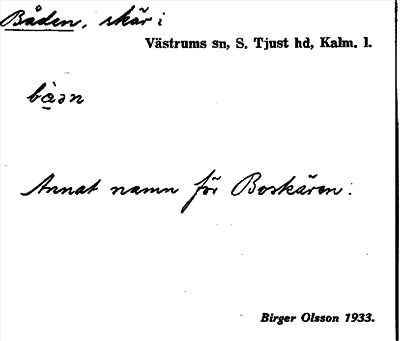 Båden, skär i
Västrums sn, S. Tjust hd, Kalm. l.
bà̱ən
Annat namn för Boskären.
Birger Olsson 1933.